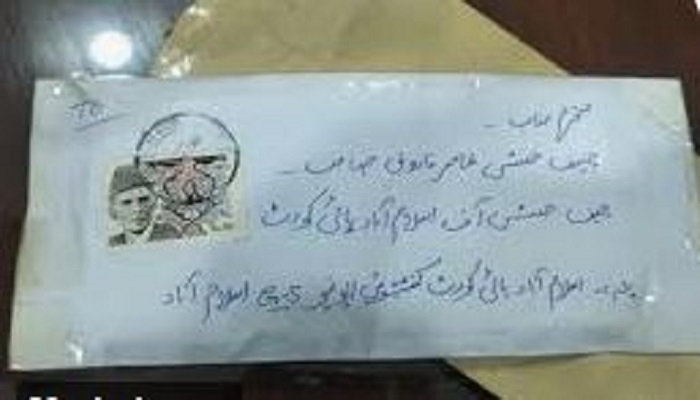 To
محترم جناب۔
چیف جسٹس عامر فاروق صاحب۔
چیف جسٹس آف اسلام آباد ہائی کورٹ
پتہ:۔ اسلام آباد ہائی کورٹ کنسٹیٹیوشن ایونیو اسلام آباد